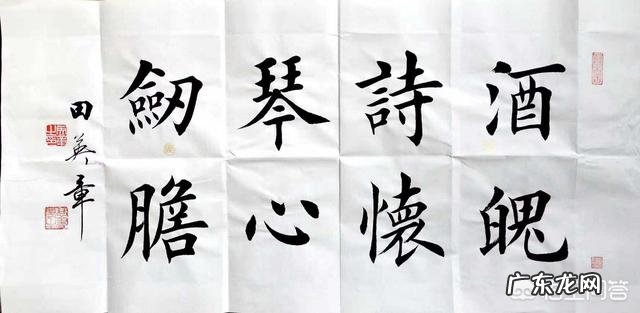 酒魄
詩懷
琴心
劒膽
田英章
广东龙网